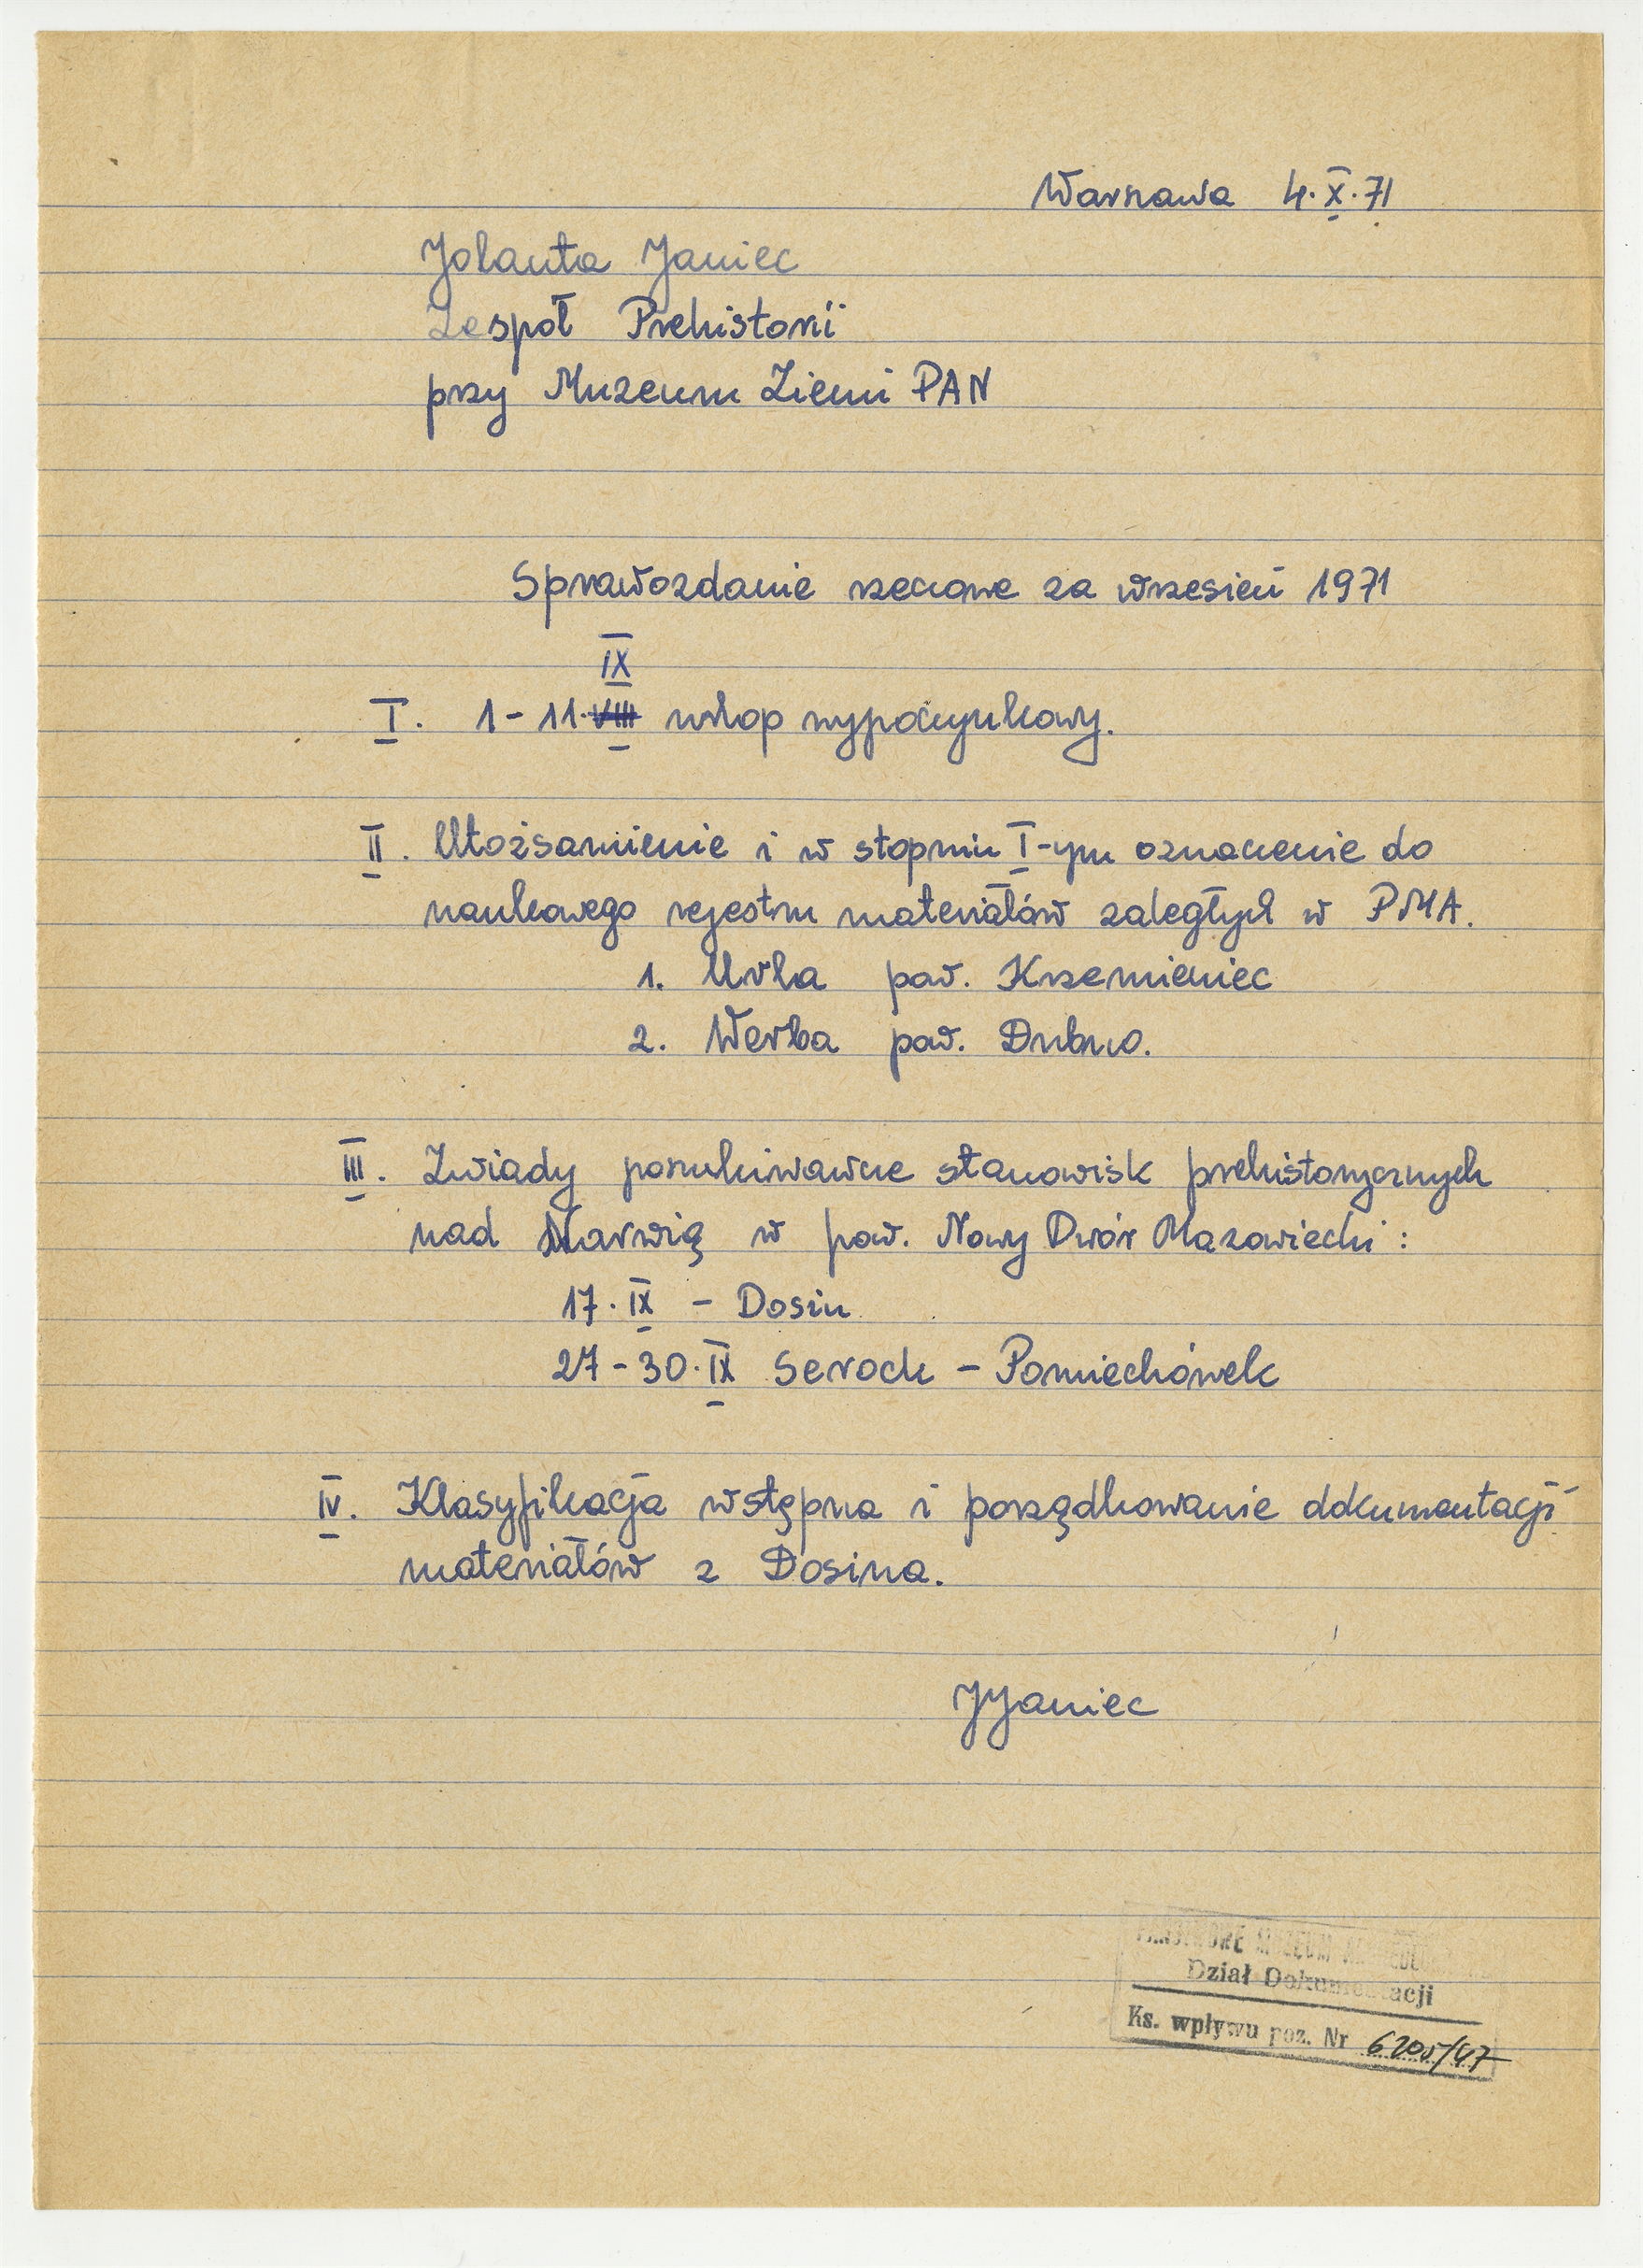 Warszawa 4.X.71
Jolanta Janiec
Zespół Prehistorii
przy Muzeum Ziemi PAN
Sprawozdanie rzeczowe za wrzesień 1971
IX
I. 1-11.VIII urlop wypoczynkowy.
II. Utożsamienie i w stopniu I-ym oznaczenie do
naukowego rejestru materiałów zaległych w PMA.
1. Urla pow. Krzemieniec
2. Werba pow. Dubno.
III. Zwiady poszukiwawcze stanowisk prehistorycznych
nad Narwią w pow. Nowy Dwór Mazowiecki:
17.IX - Dosin
27-30.IX Serock - Pomiechówek
IV. Klasyfikacja wstępna i porządkowanie dokumentacji
materiałów z Dosina.
JJaniec
PAŃSTWOWE MUZEUM ARCHEOLOGICZNE
Dział Dokumentacji
Ks. wpływu poz. Nr 6205/47